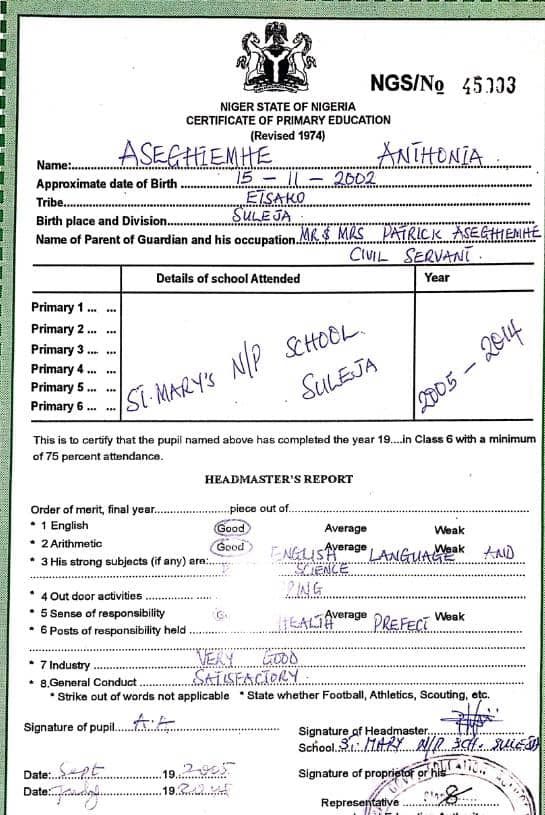 NGS/No 45003
NIGER STATE OF NIGERIA
CERTIFICATE OF PRIMARY EDUCATION
(Revised 1974)
Name: ASEGHIEMHE ANTHONIA
Approximate date of Birth 15 - 11 - 2002
Tribe ETSAKO
Birth place and Division SULEJA
Name of Parent of Guardian and his occupation MR & MRS PATRICK ASEGHIEMHE
CIVIL SERVANT.
Details of school Attended Year
Primary 1 ... ...
Primary 2 ... ...
Primary 3 ... ...
Primary 4 ... ...
Primary 5 ... ...
Primary 6 ... ...
ST. MARY'S N/P SCHOOL.
SULEJA
2005 - 2014
This is to certify that the pupil named above has completed the year 19....in Class 6 with a minimum
of 75 percent attendance.
HEADMASTER'S REPORT
Order of merit, final year..........piece out of..........
* 1 English Good Average Weak
* 2 Arithmetic Good Average Weak
* 3 His strong subjects (if any) are: ENGLISH LANGUAGE AND
SCIENCE
* 4 Out door activities
* 5 Sense of responsibility Average Weak
* 6 Posts of responsibility held HEALTH PREFECT
* 7 Industry VERY GOOD
* 8,General Conduct SATISFACTORY.
* Strike out of words not applicable * State whether Football, Athletics, Scouting, etc.
Signature of pupil A.A
Signature of Headmaster
School ST. MARY N/P SCH. SULEJA
Date: Sept 19 2005
Signature of proprietor or his
Date: 19
Representative